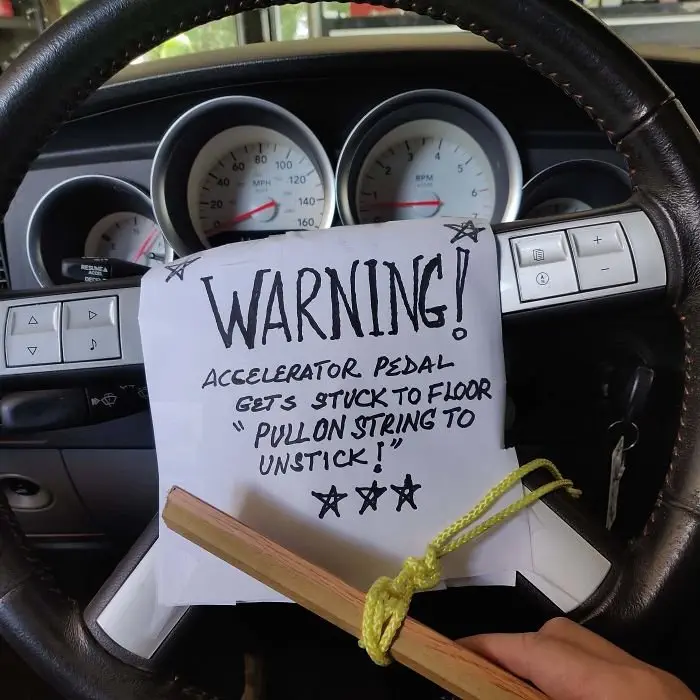 80
60
100
40
MPH
120
20
140
0
160
3
4
2
RPM
5
1
6
RESUME
ACCEL
WARNING!
ACCELERATOR PEDAL
GETS STUCK TO FLOOR
"PULL ON STRING TO
UNSTICK!"